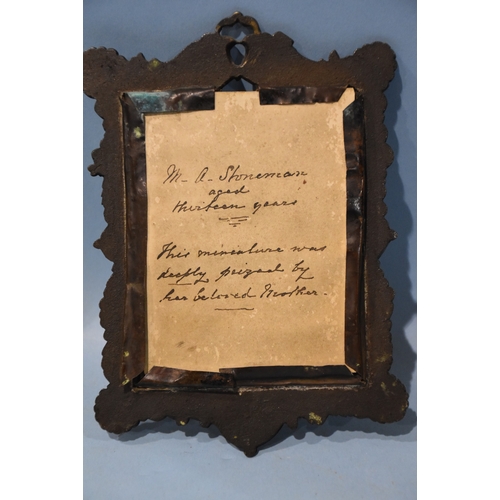 M - A - Stoneman
aged
thirteen years
This miniature was
deeply prized by
her beloved Mother -